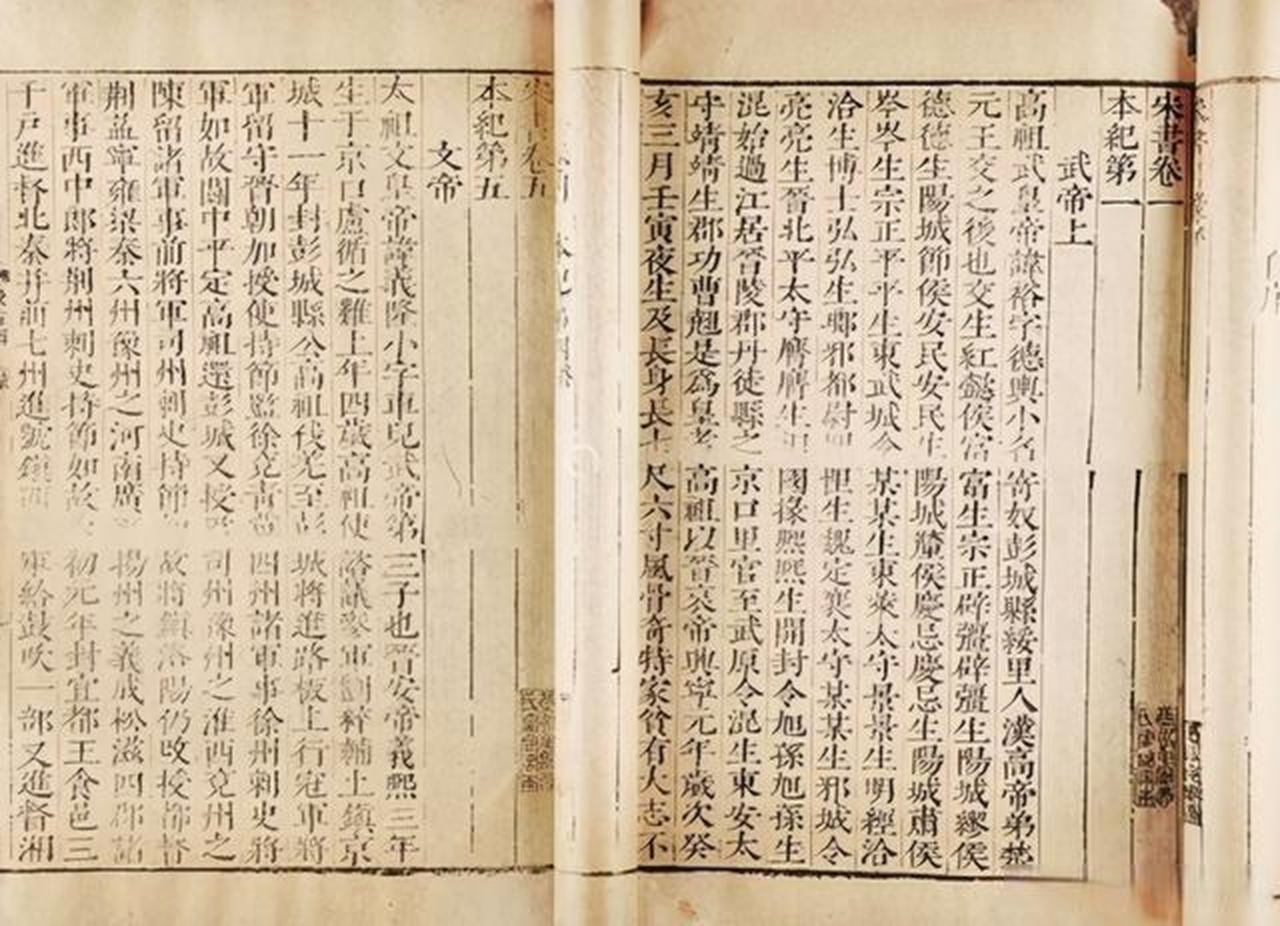 宋書卷一
本紀第一
武帝上
高祖武皇帝諱裕字德輿小名寄奴彭城縣綏里人漢高帝弟楚
元王交之後也交生紅懿侯富富生宗正辟彊辟彊生陽城繆侯
德德生陽城節侯安民安民生陽城釐侯慶忌慶忌生陽城肅侯
岑岑生宗正平平生東武城令某某生東萊太守景景生明經洽
洽生博士弘弘生瑯邪都尉悝悝生魏定襄太守某某生邪城令
亮亮生晉北平太守膺膺生相國掾熙熙生開封令旭孫旭孫生
混始過江居晉陵郡丹徒縣之京口里官至武原令混生東安太
守靖靖生郡功曹翹是爲皇考高祖以晉哀帝興寧元年歲次癸
亥三月壬寅夜生及長身長七尺六寸風骨奇特家貧有大志不
宋書卷五
本紀第五
文帝
太祖文皇帝諱義隆小字車兒武帝第三子也晉安帝義熙三年
生于京口盧循之難上年四歲高祖使諮議參軍劉粹輔上鎮京
城十一年封彭城縣公高祖伐羌至彭城將進路板上行冠軍將
軍留守晉朝加授使持節監徐兗青冀四州諸軍事徐州刺史將
軍如故關中平定高祖還彭城又授監司州豫州之淮西兗州之
陳留諸軍事前將軍司州刺史持節如故將鎮洛陽仍改授都督
荆益寧雍梁秦六州豫州之河南廣平揚州之義成松滋四郡諸
軍事西中郎將荆州刺史持節如故永初元年封宜都王食邑三
千戶進督北秦并前七州進號鎮西將軍給鼓吹一部又進督湘